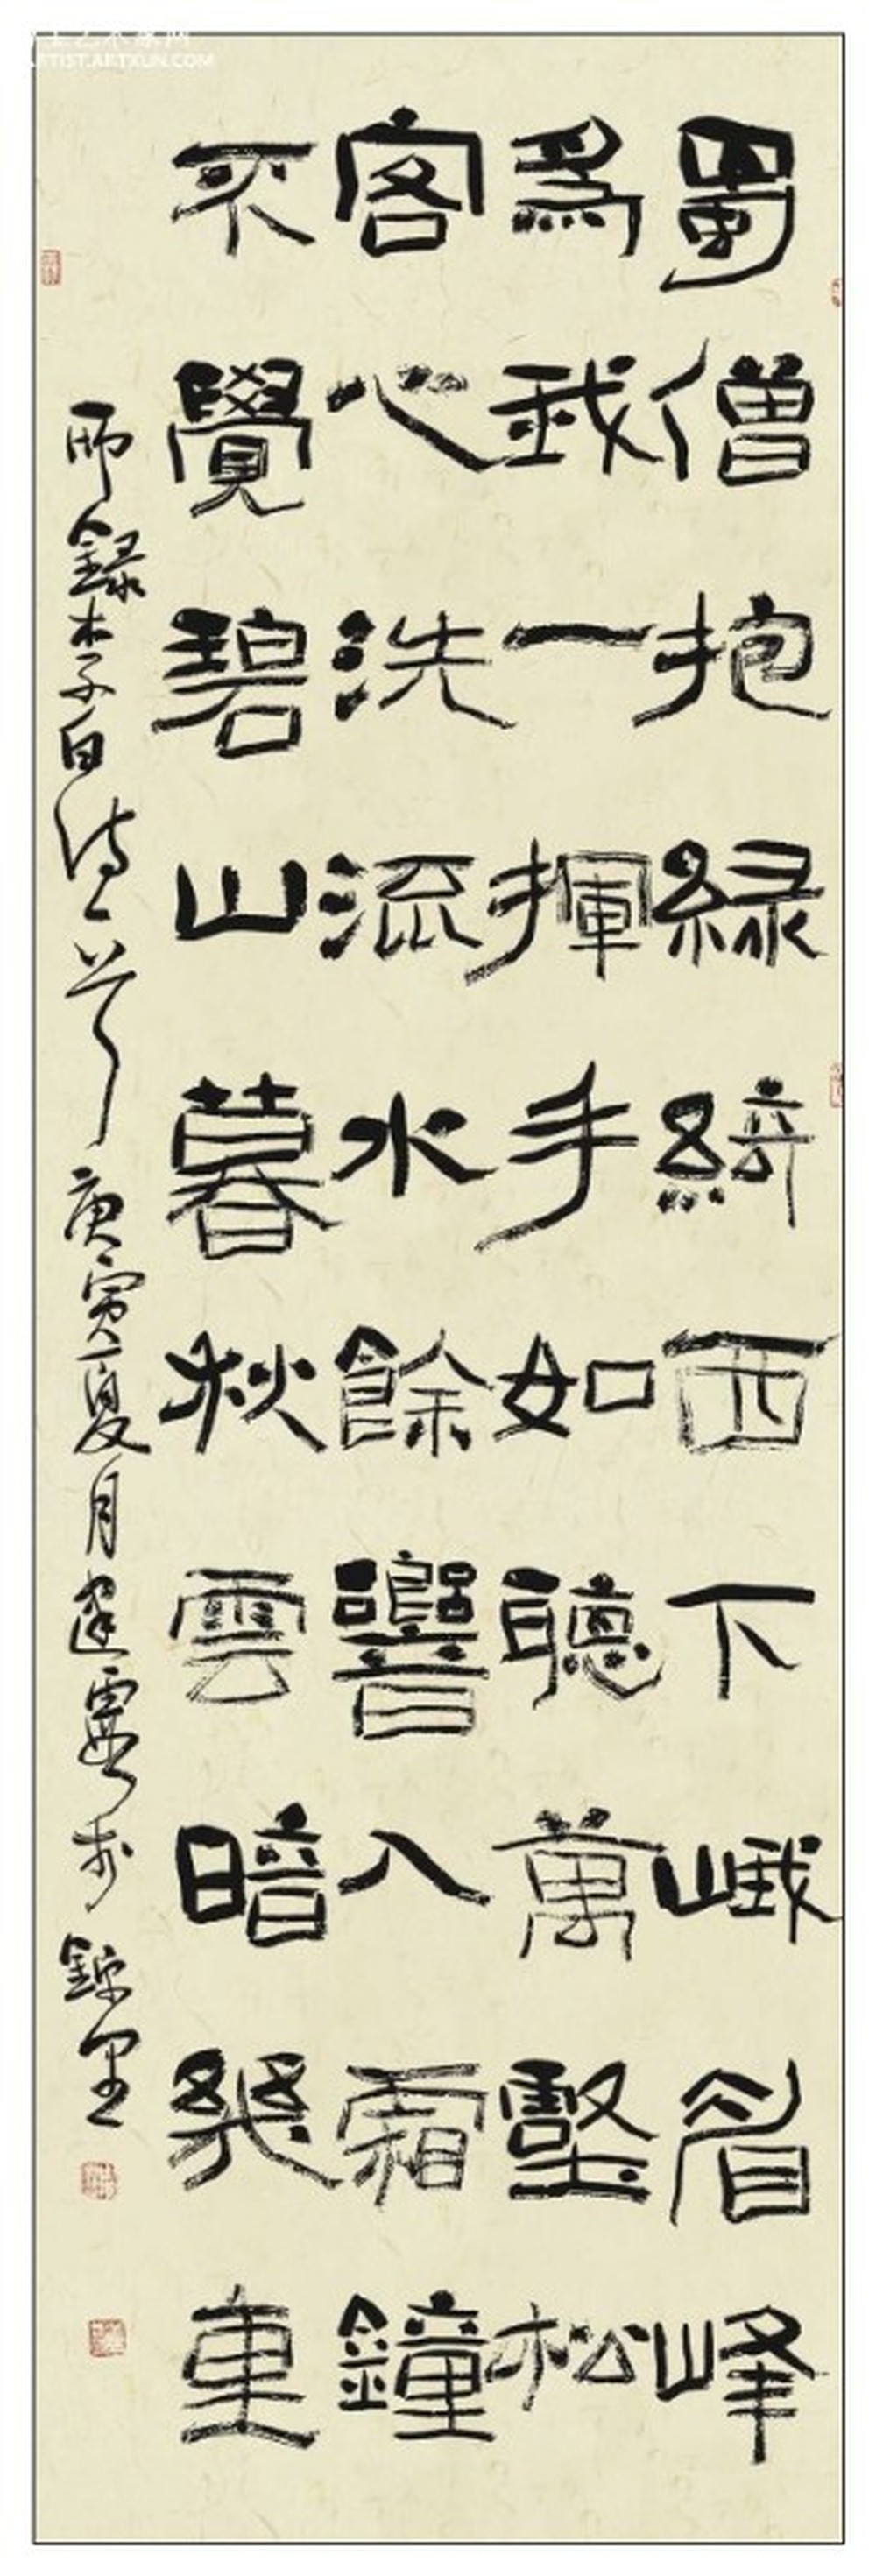 蜀僧抱綠綺西下峨眉峰
爲我一揮手如聽萬壑松
客心洗流水餘響入霜鐘
不覺碧山暮秋雲暗幾重
錄李白詩一首 庚寅夏月建霞於
ARTIST.ARTXUN.COM